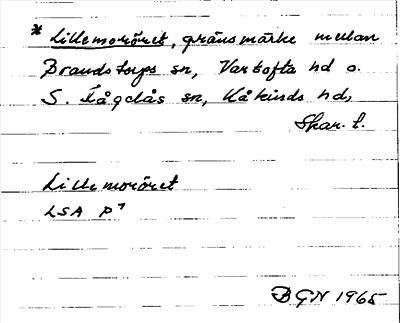 * Lillemoröret, gränsmärke mellan
Brandstorps sn, Vartofta hd o.
S. Fågelås sn, Kåkinds hd,
Skar. l.
Lillemoröret
LSA P⁷
BGN 1965